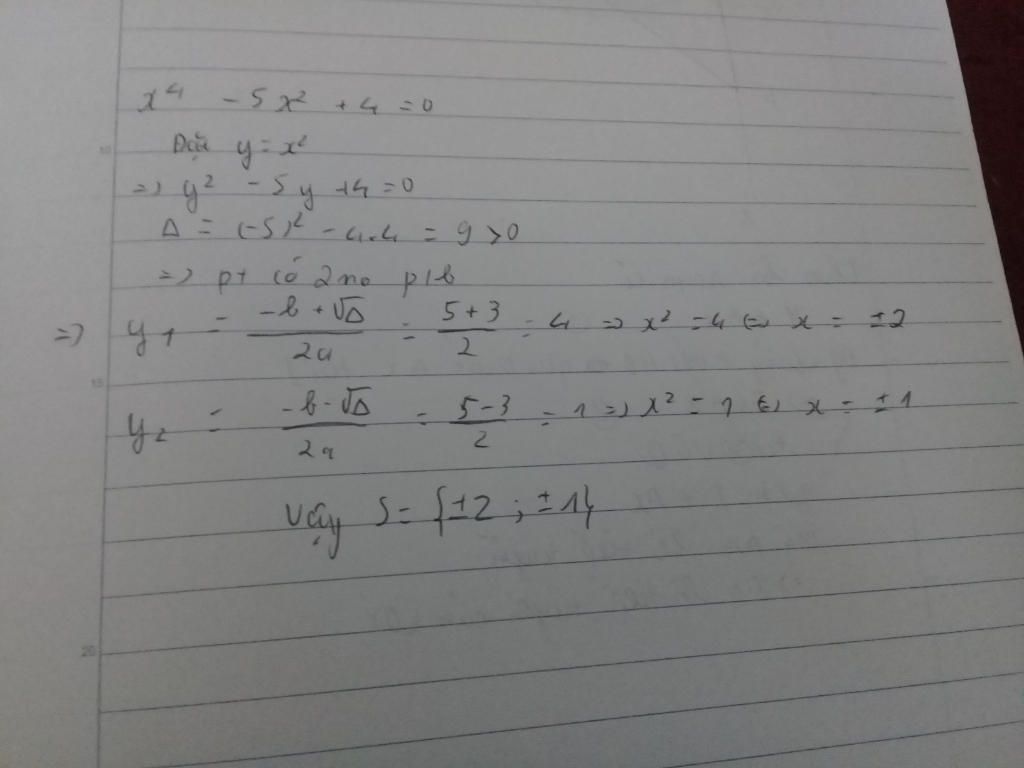 x⁴ - 5x² + 4 = 0
Đặt y = x²
=> y² - 5y + 4 = 0
Δ = (-5)² - 4.4 = 9 > 0
=> pt có 2 no p/b
=> y₁ = (-b + √Δ)/2a = (5 + 3)/2 = 4 => x² = 4 <=> x = ±2
y₂ = (-b - √Δ)/2a = (5 - 3)/2 = 1 => x² = 1 <=> x = ±1
Vậy S = {±2 ; ±1}
10
15
20